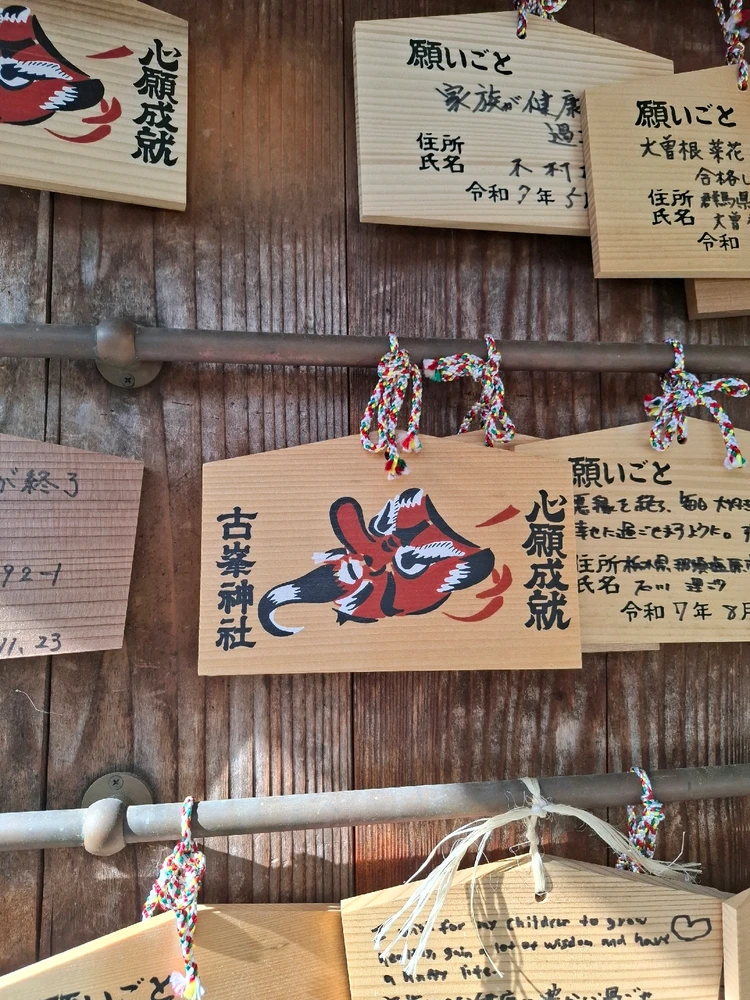 心願成就
願いごと
家族が健康
過
住所
氏名 木村
令和7年5月
願いごと
大曽根 菜花
合格し
住所 群馬県
氏名 大曽
令和
が終了
92-1
11.23
古峯神社
心願成就
願いごと
幸せに過ごせますように。
住所 栃木県
氏名 石川
令和7年8月
for my children to grow
gain a lot of wisdom and have
a happy life.
願いごと